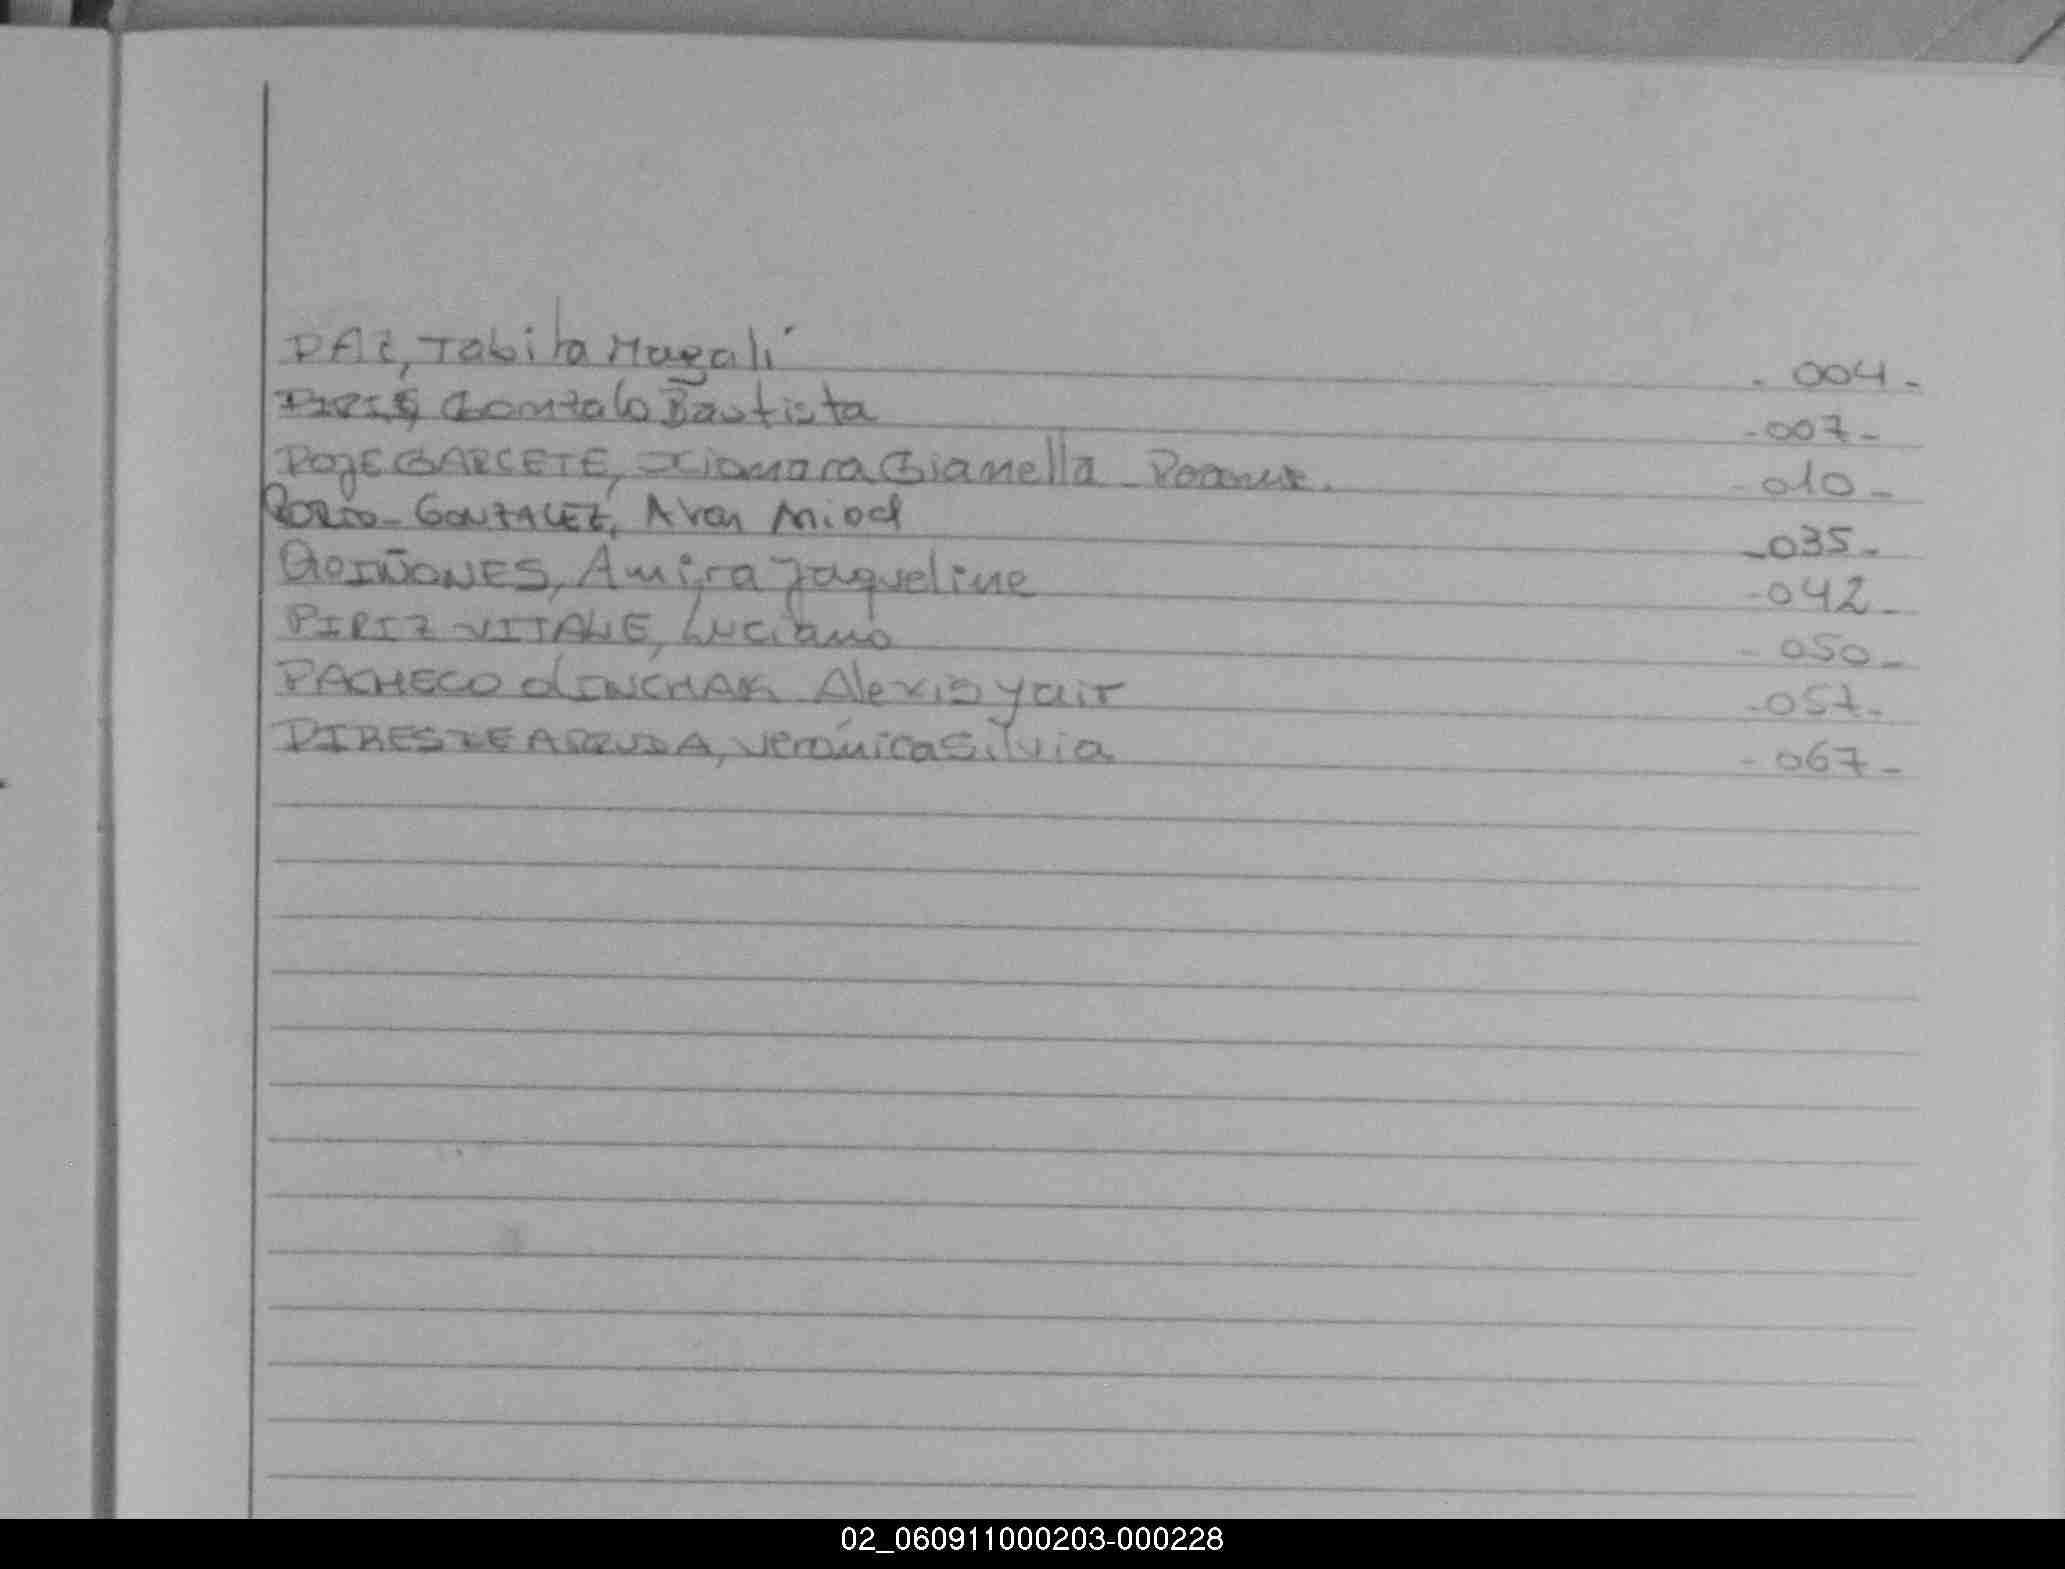 PAZ, Tabita Magalí - 004 -
PIRIS, Gonzalo Bautista - 007 -
POJE GARCETE, Xiomara Gianella - 010 -
PORTO - GONZALEZ, - 035 -
QUIÑONES, Amira Jaqueline - 042 -
PIRIZ VITALE, Luciano - 050 -
PACHECO Alexis Yair - 057 -
Verónica Silvia - 067 -
02_060911000203-000228